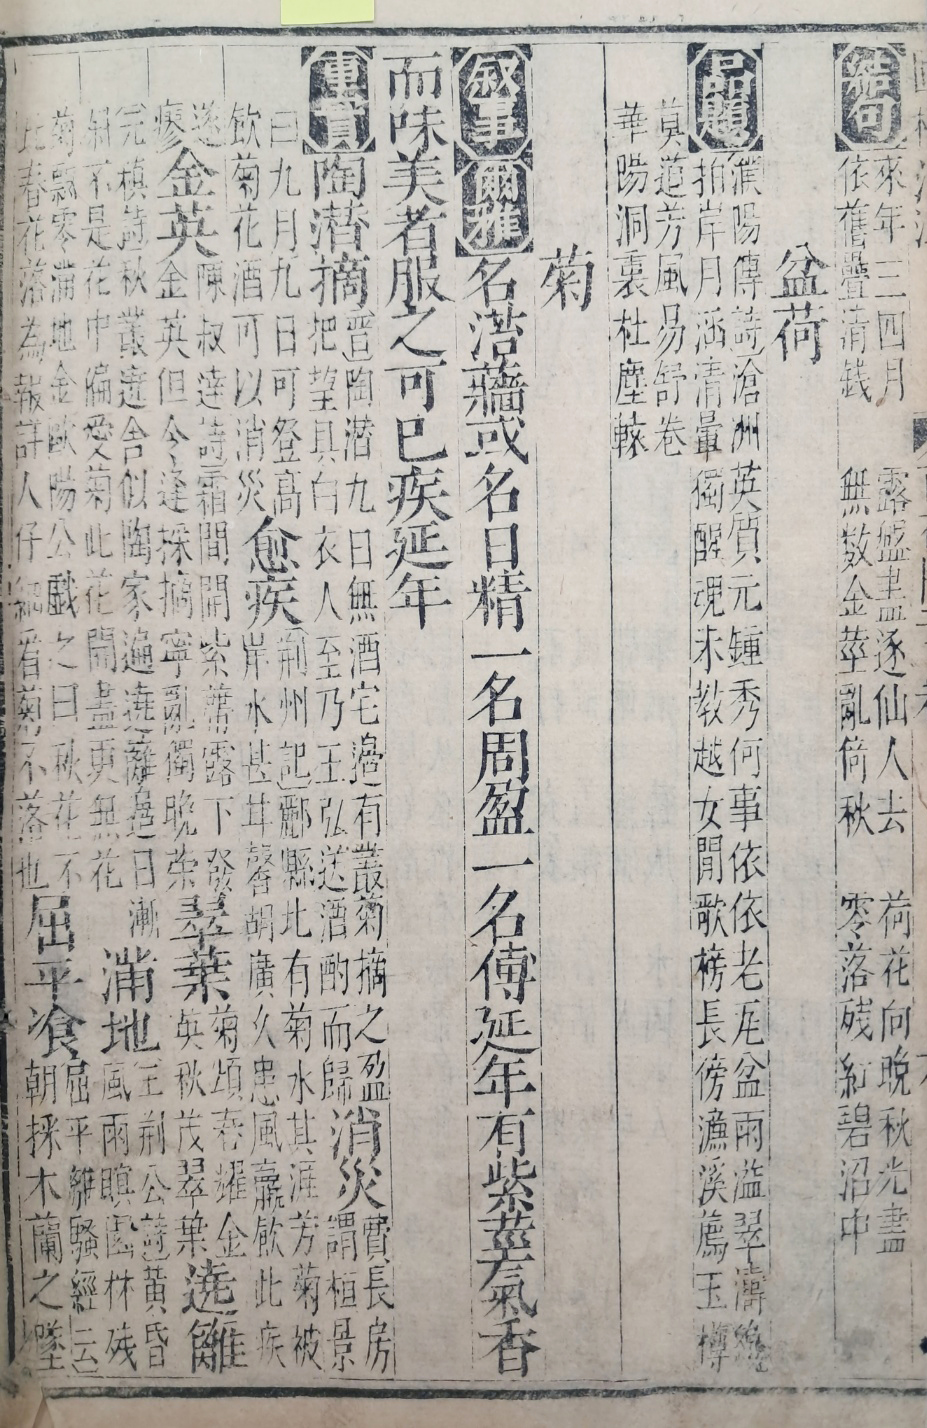 結句
來年三四月
依舊疊清錢
露盛盡逐仙人去
無數金莖亂倚秋
荷花向晚秋光盡
零落残紅碧沼中
盆荷
品題
濮陽傳詩滄洲英質元鍾秀何事依依老瓦盆雨滥翠濤
拍岸月涵清暈獨醒魂未教越女閒歌榜長傍漁溪薦玉樽
莫道芳風易舒卷
華陽洞裏杜塵轅
菊
叙事
爾雅
名治蘠或名日精一名周盈一名傅延年有紫莖氣香
而味美者服之可已疾延年
事實
陶潜摘
晋陶潜九日無酒宅邉有叢菊摘之盈
把望見白衣人至乃王弘送酒酌而歸
消災
費長房
謂桓景
曰九月九日可登高
飲菊花酒可以消災
愈疾
荆州記酈縣北有菊水其涯芳菊被
岸水甚甘馨胡廣久患風羸飲此疾
遂
瘳
金英
陳叔逹詩霜間開紫蔕露下發
金英但令逢採摘寧亂獨晚荣
翠葉
菊頌春耀金
英秋茂翠葉
遶籬
元稹詩秋叢遶舍似陶家遍遶籬邉日漸
斜不是花中偏愛菊此花開盡更無花
滿地
王荆公詩黄昏
風雨瞑園林残
菊飄零滿地金歐陽公戯之曰秋花不
比春花落為報詩人仔細看菊不落也
屈平飡
屈平離騷經云
朝採木蘭之墜